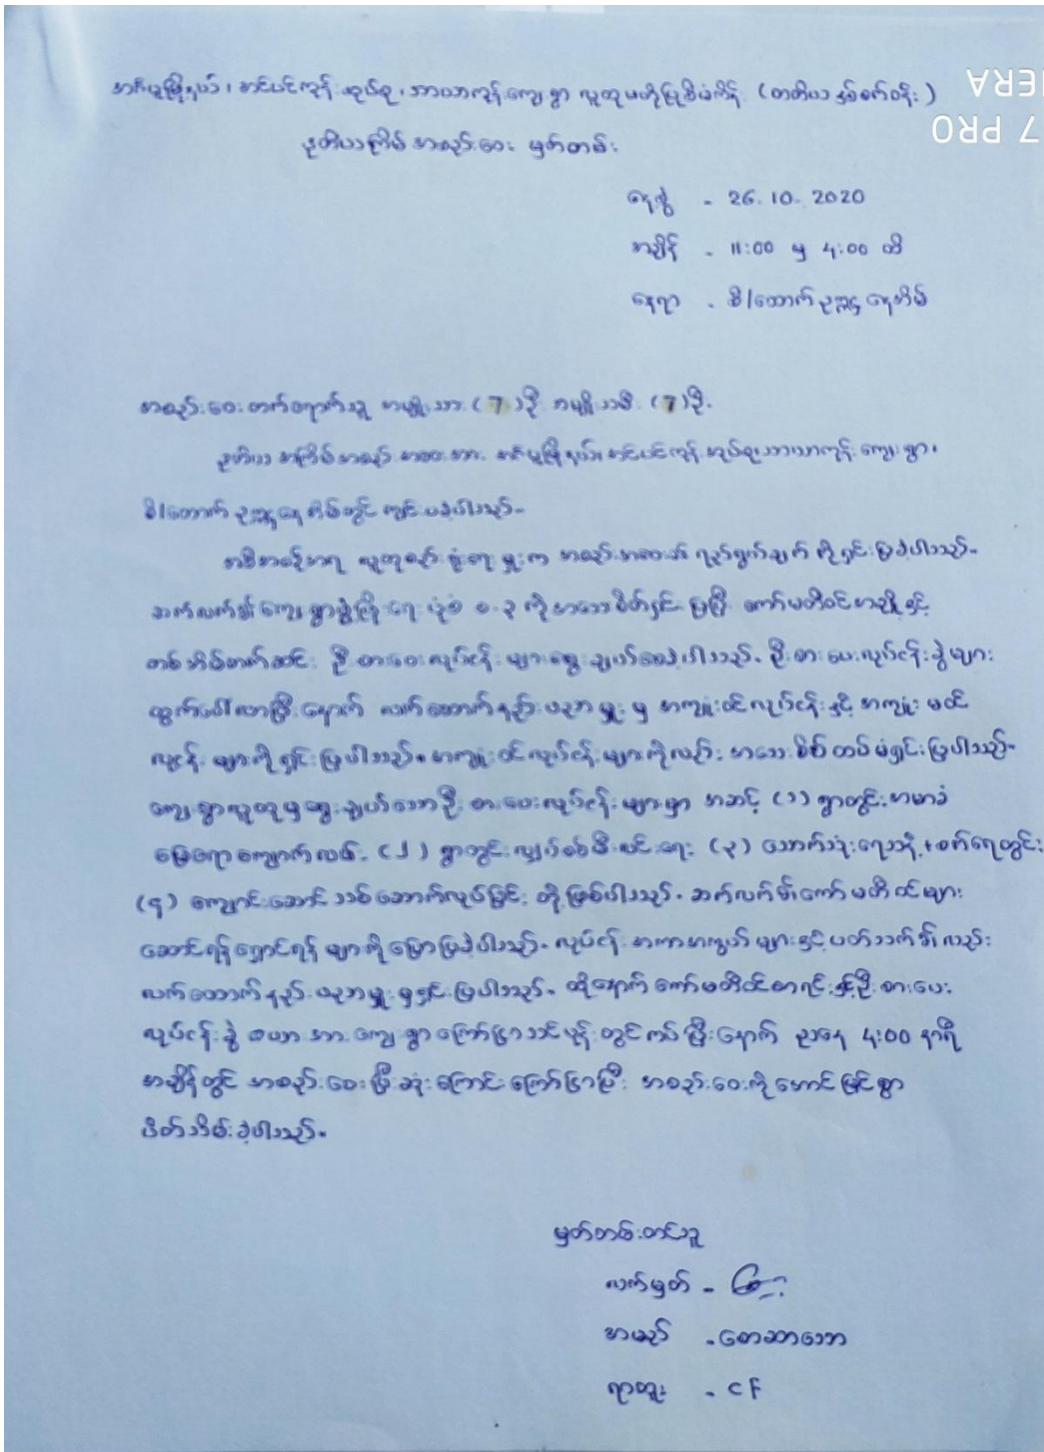 အင်္ဂပူမြို့နယ်၊ အင်ပင်ကုန်းအုပ်စု၊ သာယာကုန်းကျေးရွာ လူထုဗဟိုပြုစီမံကိန်း (တတိယနှစ်စက်ဝန်း)
ဒုတိယအကြိမ် အစည်းအဝေး မှတ်တမ်း
နေ့စွဲ - 26.10.2020
အချိန် - 11:00 မှ 4:00 ထိ
နေရာ - စီ/ထောက် ဥက္ကဌနေအိမ်
အစည်းအဝေး တက်ရောက်သူ အမျိုးသား (7)ဦး အမျိုးသမီး (7)ဦး
ဒုတိယ အကြိမ်အစည်းအဝေးအား အုပ်စု၊ သာယာကုန်းကျေးရွာ၊
စီ/ထောက် ဥက္ကဌနေအိမ်တွင် ကျင်းပခဲ့ပါသည်။
အစီအစဉ်အရ လူထုစည်းရုံးရေးမှူးက အစည်းအဝေး၏ ရည်ရွယ်ချက်ကို ရှင်းပြခဲ့ပါသည်။
ဆက်လက်၍ ကျေးရွာဖွံ့ဖြိုးရေး ပုံစံ စ-၃ ကို အသေးစိတ်ရှင်းပြပြီး ကော်မတီဝင်အချို့နှင့်
တစ်အိမ်တက်ဆင်း ဦးစားပေးလုပ်ငန်းများ ရွေးချယ်စေခဲ့ပါသည်။ ဦးစားပေးလုပ်ငန်းခွဲများ
ထွက်ပေါ်လာပြီးနောက် လက်ထောက်နည်းပညာမှူးမှ အကျုံးဝင်လုပ်ငန်းနှင့် အကျုံးမဝင်
လုပ်ငန်းများကို ရှင်းပြပါသည်။ အကျုံးဝင်လုပ်ငန်းများကိုလည်း အသေးစိတ် ထပ်မံရှင်းပြပါသည်။
ကျေးရွာလူထုမှ ရွေးချယ်သော ဦးစားပေးလုပ်ငန်းများမှာ အဆင့် (၁) ရွာတွင်းအမာခံ
မြေရောကျောက်လမ်း (၂) ရွာတွင်းလျှပ်စစ်မီးလင်းရေး (၃) သောက်သုံးရေသန့် + စက်ရေတွင်း
(၄) ကျောင်းဆောင်သစ်ဆောက်လုပ်ခြင်း တို့ဖြစ်ပါသည်။ ဆက်လက်၍ ကော်မတီဝင်များ
ဆောင်ရန်ရှောင်ရန်များကို ပြောပြခဲ့ပါသည်။ လုပ်ငန်းအကာအကွယ်များနှင့်ပတ်သက်၍လည်း
လက်ထောက်နည်းပညာမှူးမှ ရှင်းပြပါသည်။ ထို့နောက် ကော်မတီဝင်စာရင်းနှင့်ဦးစားပေး
လုပ်ငန်းခွဲ ဇယားအား ကျေးရွာကြော်ငြာသင်ပုန်းတွင်ကပ်ပြီးနောက် ညနေ 4:00 နာရီ
အချိန်တွင် အစည်းအဝေးပြီးဆုံးကြောင်းကြော်ငြာပြီး အစည်းအဝေးကိုအောင်မြင်စွာ
ပိတ်သိမ်းခဲ့ပါသည်။
မှတ်တမ်းတင်သူ
လက်မှတ် -
အမည် - စောဆာသော
ရာထူး - CF